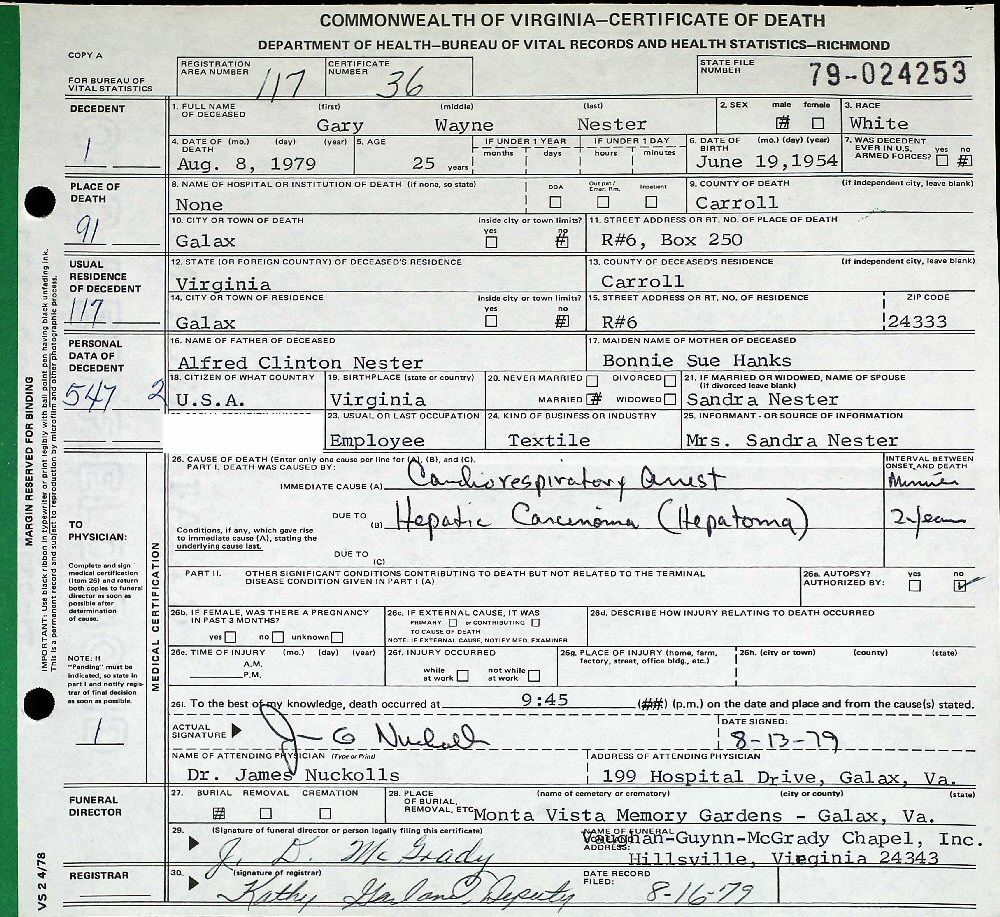 COMMONWEALTH OF VIRGINIA—CERTIFICATE OF DEATH
DEPARTMENT OF HEALTH—BUREAU OF VITAL RECORDS AND HEALTH STATISTICS—RICHMOND
COPY A
FOR BUREAU OF VITAL STATISTICS
REGISTRATION AREA NUMBER 117
CERTIFICATE NUMBER 36
STATE FILE NUMBER 79-024253
DECEDENT
1
1. FULL NAME OF DECEASED (first) (middle) (last)
Gary Wayne Nester
2. SEX male # female
3. RACE
White
4. DATE OF DEATH (mo.) (day) (year)
Aug. 8, 1979
5. AGE
25 years
IF UNDER 1 YEAR months days
IF UNDER 1 DAY hours minutes
6. DATE OF BIRTH (mo.) (day) (year)
June 19,1954
7. WAS DECEDENT EVER IN U.S. ARMED FORCES? yes no #
PLACE OF DEATH
91
8. NAME OF HOSPITAL OR INSTITUTION OF DEATH (if none, so state)
None
DOA Out pat/ Emer. Rm. Inpatient
9. COUNTY OF DEATH (if independent city, leave blank)
Carroll
10. CITY OR TOWN OF DEATH
Galax
inside city or town limits? yes no #
11. STREET ADDRESS OR RT. NO. OF PLACE OF DEATH
R#6, Box 250
USUAL RESIDENCE OF DECEDENT
117
12. STATE (OR FOREIGN COUNTRY) OF DECEASED'S RESIDENCE
Virginia
13. COUNTY OF DECEASED'S RESIDENCE (if independent city, leave blank)
Carroll
14. CITY OR TOWN OF RESIDENCE
Galax
inside city or town limits? yes no #
15. STREET ADDRESS OR RT. NO. OF RESIDENCE
R#6
ZIP CODE
24333
PERSONAL DATA OF DECEDENT
547 2
16. NAME OF FATHER OF DECEASED
Alfred Clinton Nester
17. MAIDEN NAME OF MOTHER OF DECEASED
Bonnie Sue Hanks
18. CITIZEN OF WHAT COUNTRY
U.S.A.
19. BIRTHPLACE (state or country)
Virginia
20. NEVER MARRIED DIVORCED
MARRIED # WIDOWED
21. IF MARRIED OR WIDOWED, NAME OF SPOUSE (if divorced leave blank)
Sandra Nester
23. USUAL OR LAST OCCUPATION
Employee
24. KIND OF BUSINESS OR INDUSTRY
Textile
25. INFORMANT - OR SOURCE OF INFORMATION
Mrs. Sandra Nester
MARGIN RESERVED FOR BINDING
IMPORTANT: Use black ribbon in typewriter or print legibly with ball point pen having black unfading ink.
This is a permanent record and subject to reproduction by microfilm and other photographic process.
TO PHYSICIAN:
Complete and sign medical certification (item 26) and return both copies to funeral director as soon as possible after determination of cause.
NOTE: If "Pending" must be indicated, so state in part I and notify registrar of final decision as soon as possible.
1
MEDICAL CERTIFICATION
26. CAUSE OF DEATH (Enter only one cause per line for (A), (B), and (C).
PART I. DEATH WAS CAUSED BY:
IMMEDIATE CAUSE (A) Cardiorespiratory Arrest
INTERVAL BETWEEN ONSET AND DEATH
Minutes
Conditions, if any, which gave rise to immediate cause (A), stating the underlying cause last.
DUE TO (B) Hepatic Carcinoma (Hepatoma)
2 years
DUE TO (C)
PART II. OTHER SIGNIFICANT CONDITIONS CONTRIBUTING TO DEATH BUT NOT RELATED TO THE TERMINAL DISEASE CONDITION GIVEN IN PART I (A)
26a. AUTOPSY? AUTHORIZED BY: yes no ✓
26b. IF FEMALE, WAS THERE A PREGNANCY IN PAST 3 MONTHS?
yes no unknown
26c. IF EXTERNAL CAUSE, IT WAS
PRIMARY or CONTRIBUTING
TO CAUSE OF DEATH
NOTE: IF EXTERNAL CAUSE, NOTIFY MED. EXAMINER
26d. DESCRIBE HOW INJURY RELATING TO DEATH OCCURRED
26e. TIME OF INJURY (mo.) (day) (year)
A.M.
P.M.
26f. INJURY OCCURRED
while at work not while at work
26g. PLACE OF INJURY (home, farm, factory, street, office bldg., etc.)
26h. (city or town) (county) (state)
26i. To the best of my knowledge, death occurred at 9:45 (##) (p.m.) on the date and place and from the cause(s) stated.
ACTUAL SIGNATURE J G Nuckolls
DATE SIGNED:
8-13-79
NAME OF ATTENDING PHYSICIAN (Type or Print)
Dr. James Nuckolls
ADDRESS OF ATTENDING PHYSICIAN
199 Hospital Drive, Galax, Va.
FUNERAL DIRECTOR
27. BURIAL REMOVAL CREMATION
#
28. PLACE OF BURIAL, REMOVAL, ETC. (name of cemetery or crematory) (city or county) (state)
Monta Vista Memory Gardens - Galax, Va.
29. (Signature of funeral director or person legally filing this certificate)
J. D. McGrady
NAME OF FUNERAL HOME AND ADDRESS:
Vaughan-Guynn-McGrady Chapel, Inc.
Hillsville, Virginia 24343
REGISTRAR
30. (signature of registrar)
Kathy Garland, Deputy
DATE RECORD FILED: 8-16-79
VS 2 4/78